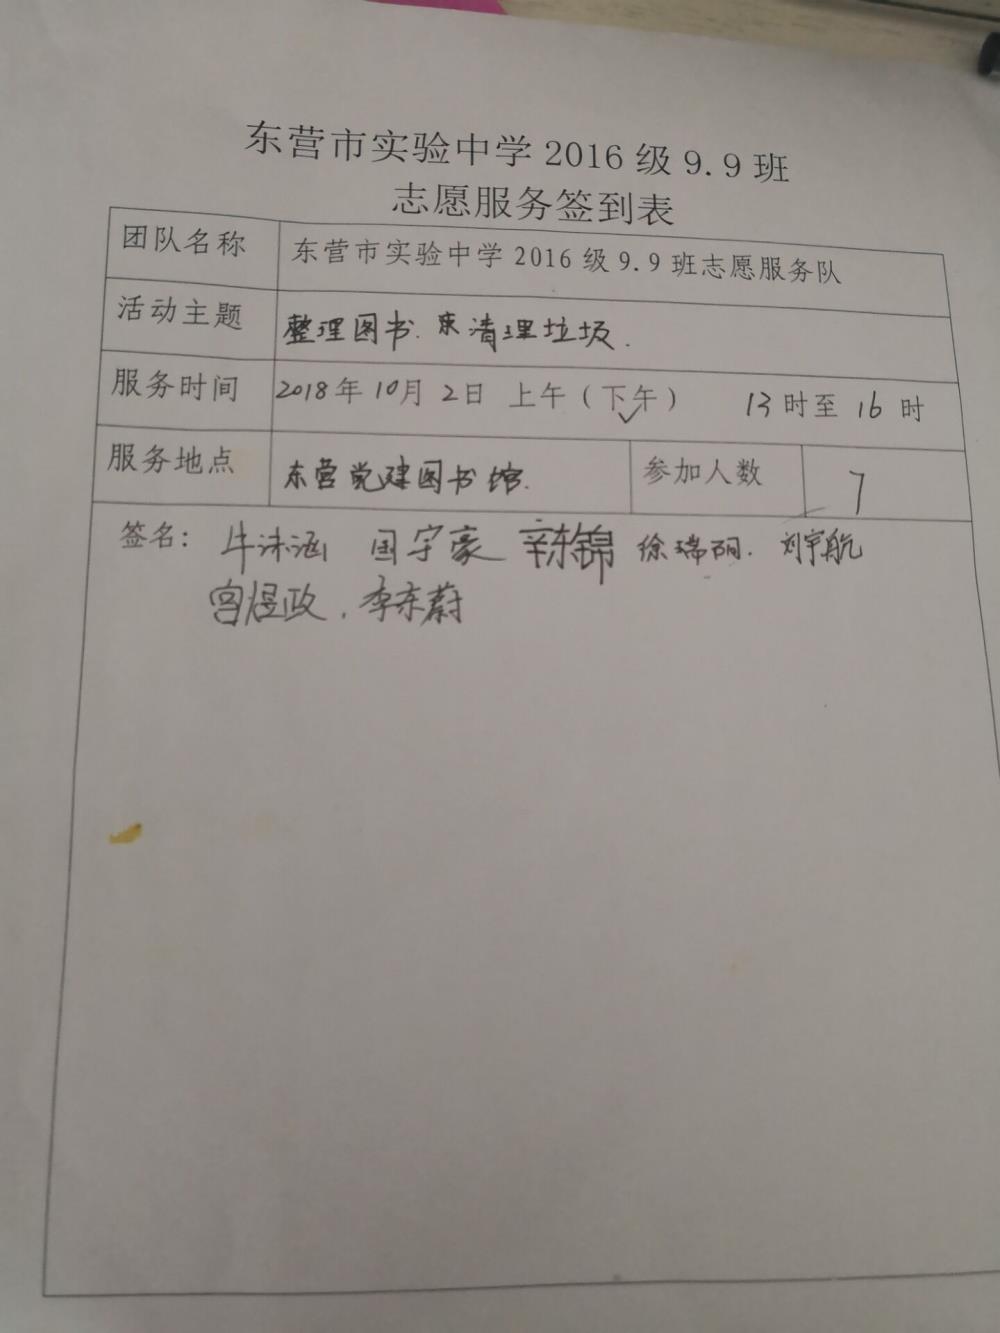 东营市实验中学 2016 级 9.9 班
志愿服务签到表
团队名称 东营市实验中学 2016 级 9.9 班志愿服务队
活动主题 整理图书. 清理垃圾.
服务时间 2018年 10月 2日 上午（下午） 13 时至 16 时
服务地点 东营党建图书馆. 参加人数 7
签名： 牛沐涵 国宇豪 辛东锦 徐瑞 刘宇航
宫煜政. 李东蔚